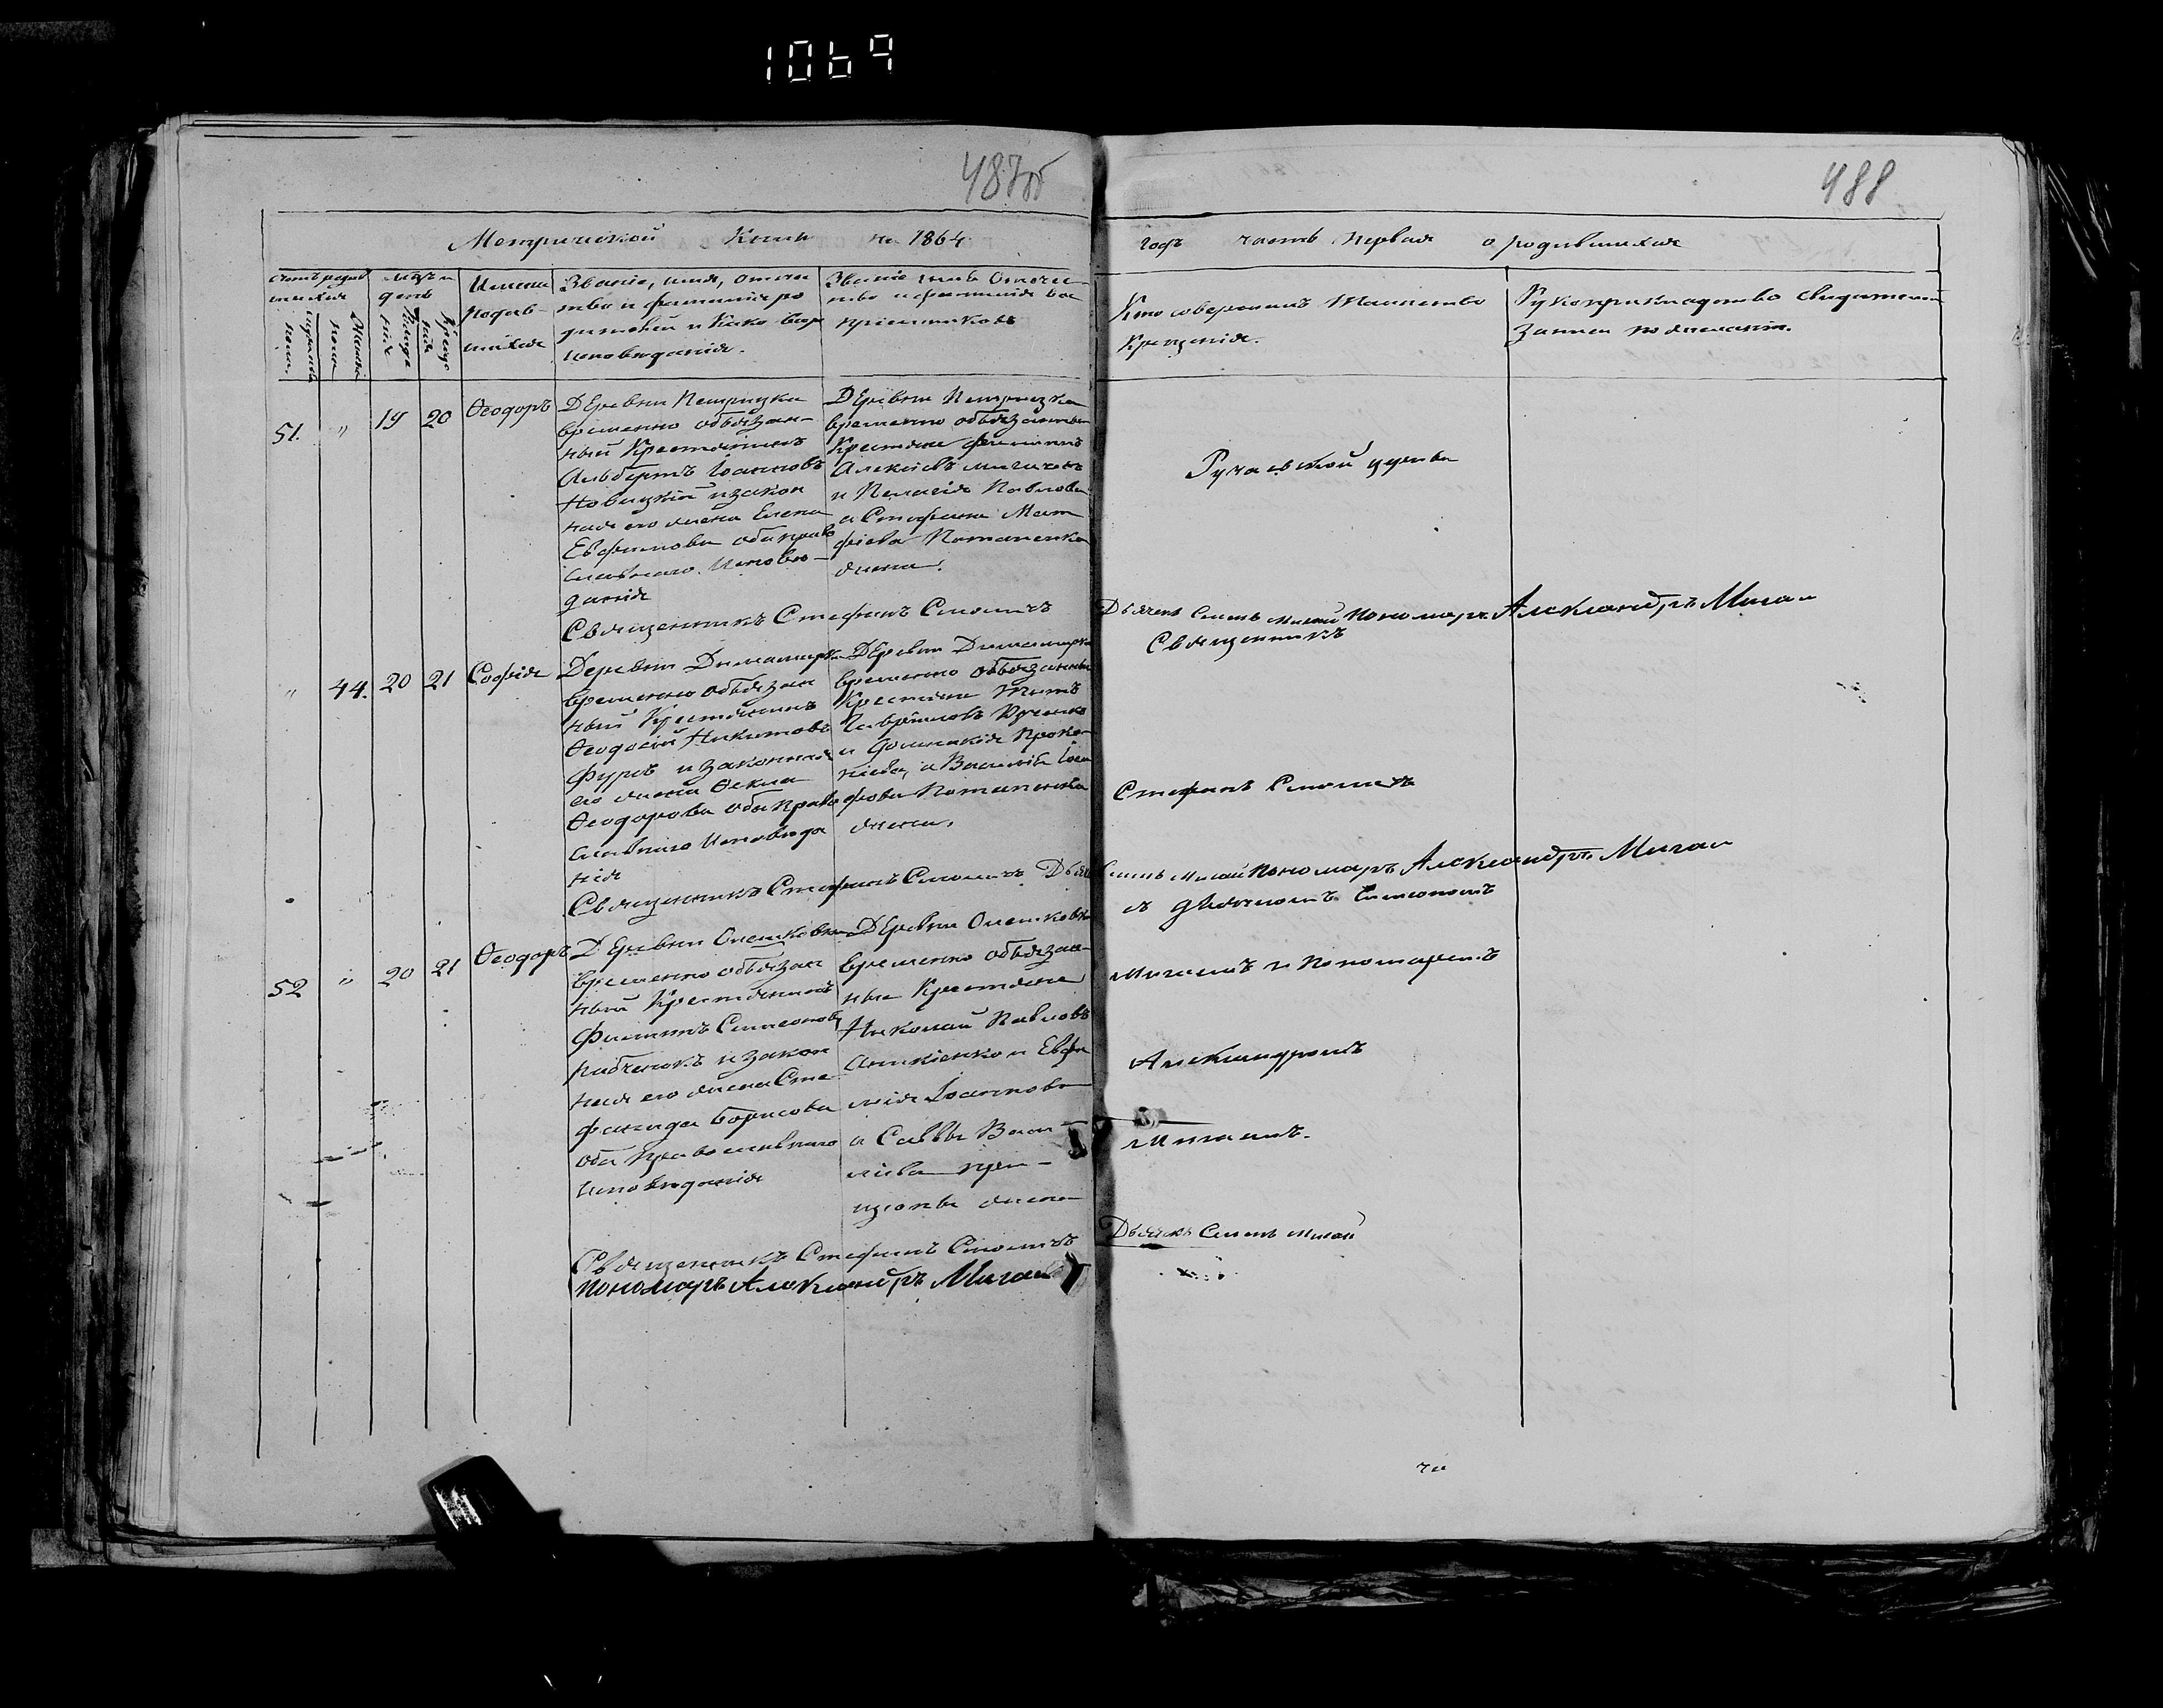 1069
487об
488
Метрической Книги на 1864
годъ часть первая о родившихся
Счетъ родив
шихся
Мужеска
пола
Женска
пола
Мѣсяцъ и
день
Рожде
нія
Креще
нія
Имена
родив-
шихся
Званіе, имя, отче
ство и фамилія ро
дителей и какого вѣро
исповѣданія.
Званіе имя Отече-
ство и фамилія во
спріемниковъ
Кто совершалъ Таинство
Крещенія.
Рукоприкладство свидѣтелей
записи по желанію.
51. " 19 20 Ѳеодоръ
Деревни Петрицка
временно обьязан-
ный Крестьянинъ
Альбертъ Іоанновъ
Новицкій и закон
ная его жена Елена
Евфимова оба право
славнаго Исповѣ-
данія
Деревни Петрицка
временно обьязанные
Крестьяне Филиппъ
Алексіевъ
и Пелагія Павлова
а Стефана Мат
фіева Потапенка
жена.
Ручаевской церкви
Священникъ Стефанъ Смоличъ
Дьячекъ Симъ Мигай Пономарь Александръ Мигай
Священникъ
" 44. 20 21 Софія
Деревни Димамерки
временно обьязан
ный Крестьянинъ
Ѳеодосій Никитовъ
Фурсъ и законная
его жена Ѳекла
Ѳеодорова оба право
славнаго Исповѣда
нія
Деревни Димамерки
временно обьязанные
Крестьяне Титъ
Гавріиловъ
и Домникія Проко
піева, а Василія Іоси
фова Потапенка
жена.
Стефанъ Смоличъ
Священникъ Стефанъ Смоличъ Дьячекъ
Симъ Мигай Пономарь Александръ Мигай
съ дьячкомъ Симеономъ
52 " 20 21 Ѳеодоръ
Деревни Олешковки
временно обьязан
ный Крестьянинъ
Филиппъ Симеоновъ
Рабченокъ и закон
ная его жена Сте
фанида Борисова
оба Православнаго
Исповѣданія
Деревни Олешковки
временно обьязан-
ные Крестьяне
Николай Павловъ
и Евфи
мія Іоаннова
а Саввы Васи-
ліева
жена
Мигаемъ и Пономаремъ
Александромъ
Мигаемъ.
Священникъ Стефанъ Смоличъ
Дьячекъ Симъ Мигай
Пономарь Александръ Мигай